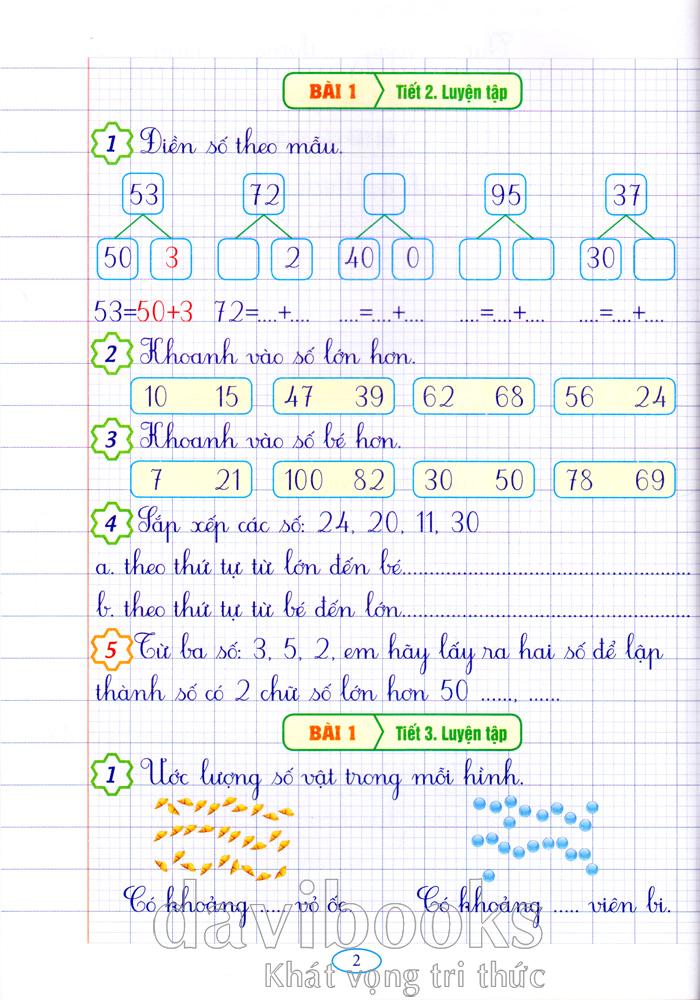 BÀI 1 Tiết 2. Luyện tập
1 Điền số theo mẫu.
53 72 95 37
50 3 2 40 0 30
53=50+3 72=....+.... ....=....+.... ....=....+.... ....=....+....
2 Khoanh vào số lớn hơn.
10 15 47 39 62 68 56 24
3 Khoanh vào số bé hơn.
7 21 100 82 30 50 78 69
4 Sắp xếp các số: 24, 20, 11, 30
a. theo thứ tự từ lớn đến bé..................................................
b. theo thứ tự từ bé đến lớn..................................................
5 Từ ba số: 3, 5, 2, em hãy lấy ra hai số để lập
thành số có 2 chữ số lớn hơn 50 ......, ......
BÀI 1 Tiết 3. Luyện tập
1 Ước lượng số vật trong mỗi hình.
Có khoảng ..... vỏ ốc Có khoảng ..... viên bi.
davibooks
2
Khát vọng tri thức